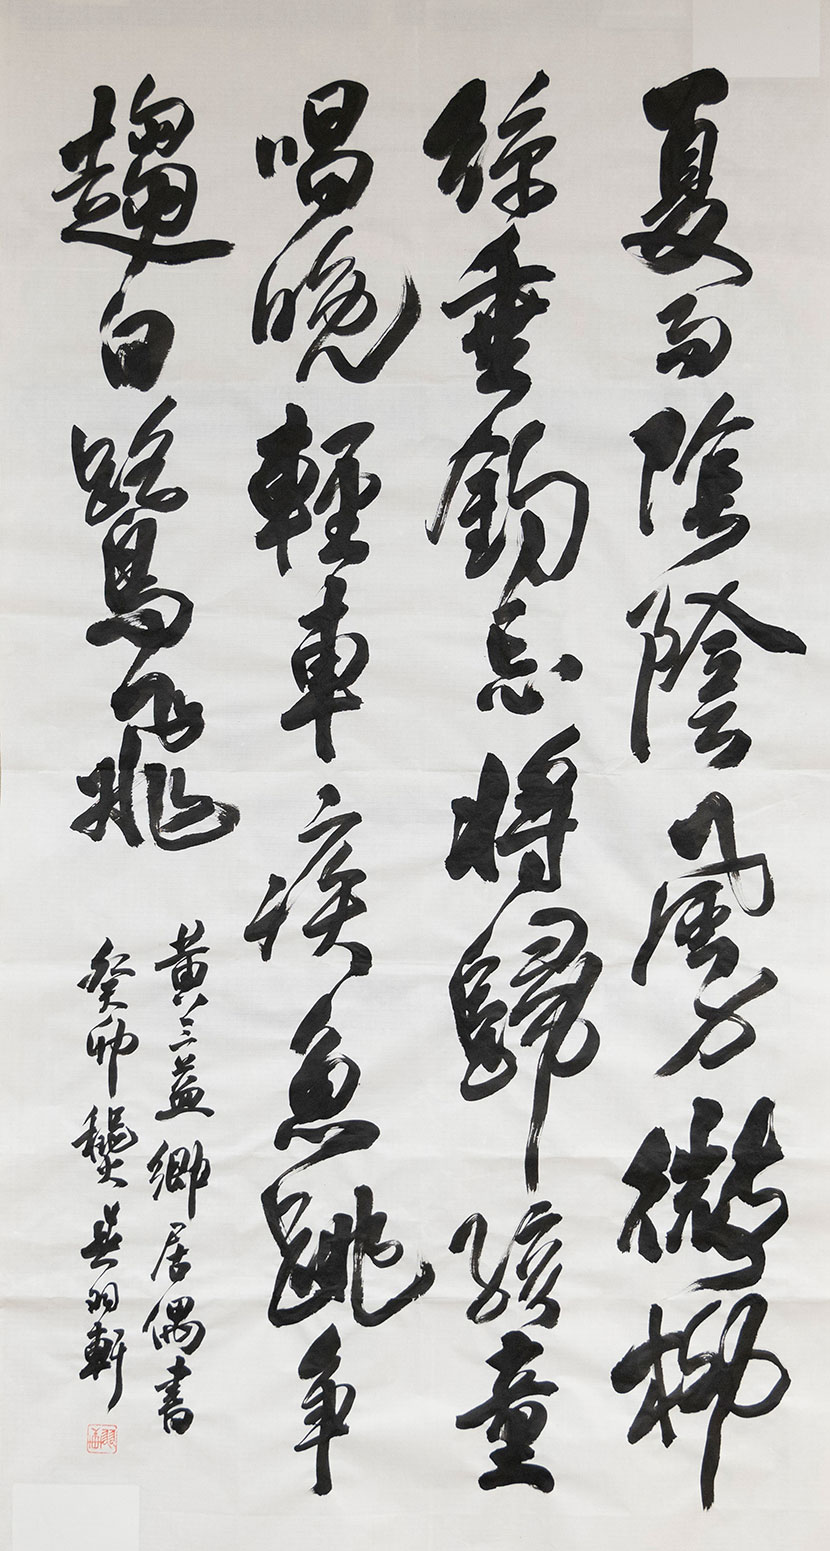 夏雨陰陰風力微柳
綠垂釣忘將歸孩童
唱晚輕車疾魚跳爭
趨白鷺飛
黃三益鄉居偶書
癸卯龝吳羽軒